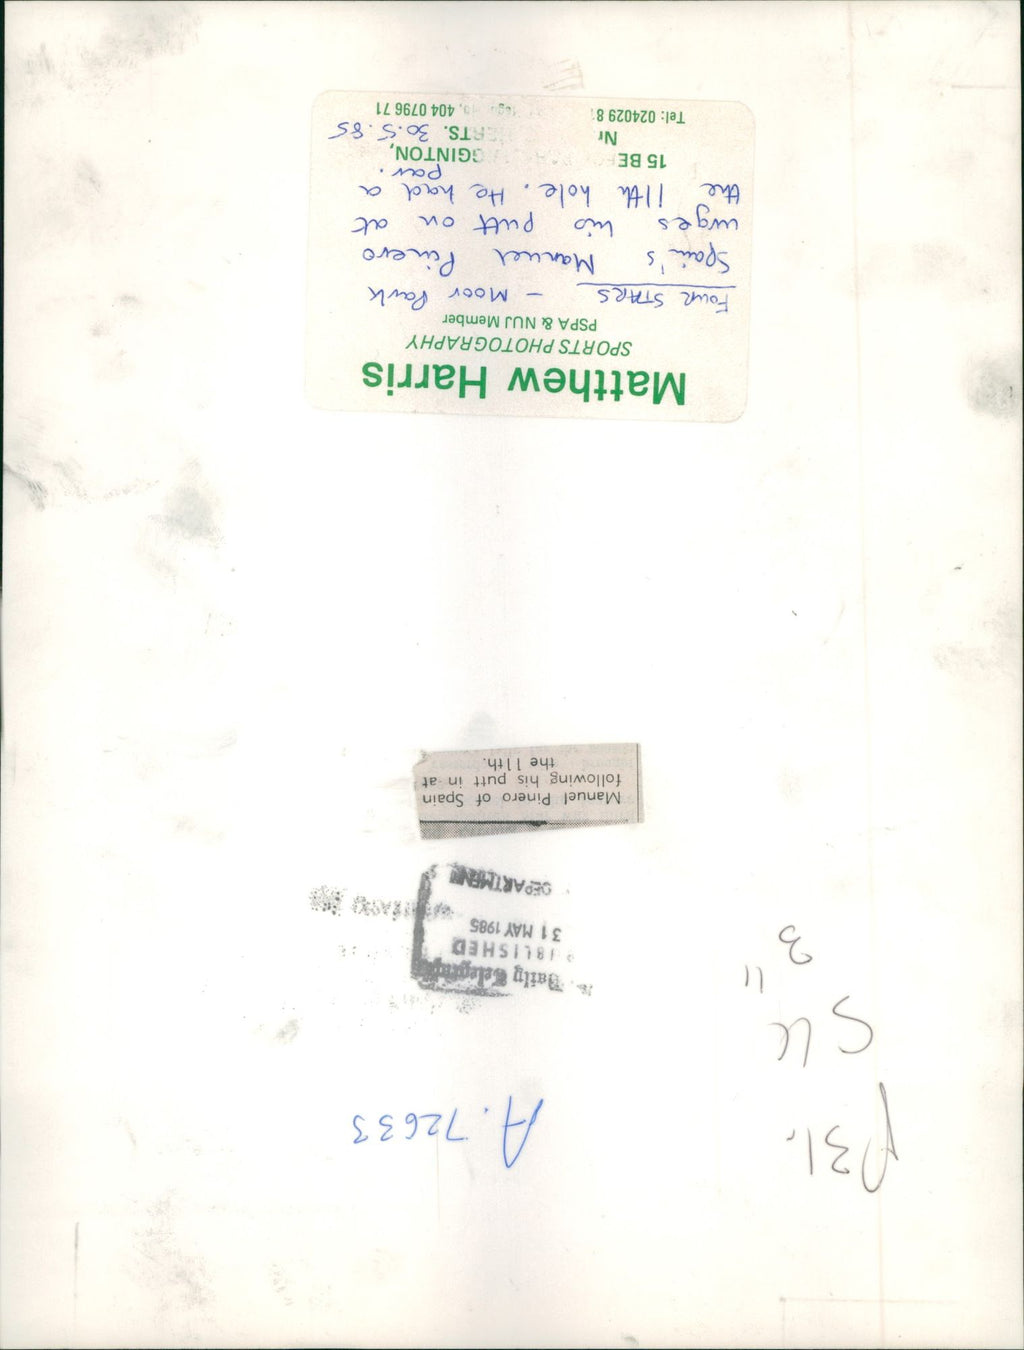 p31,
SLC
11
3
A. 72633
Daily Telegraph
PUBLISHED
31 MAY 1985
DEPARTMENT
Manuel Pinero of Spain
following his putt in at
the 11th.
Matthew Harris
SPORTS PHOTOGRAPHY
PSPA & NUJ Member
FOUR STARS - Moor Park
Spain's Manuel Pinero
urges his putt on at
the 11th hole. He had a
par.
15 BE GGINTON,
Nr HERTS. 30.5.85
Tel: 024029 8 404 0796 71